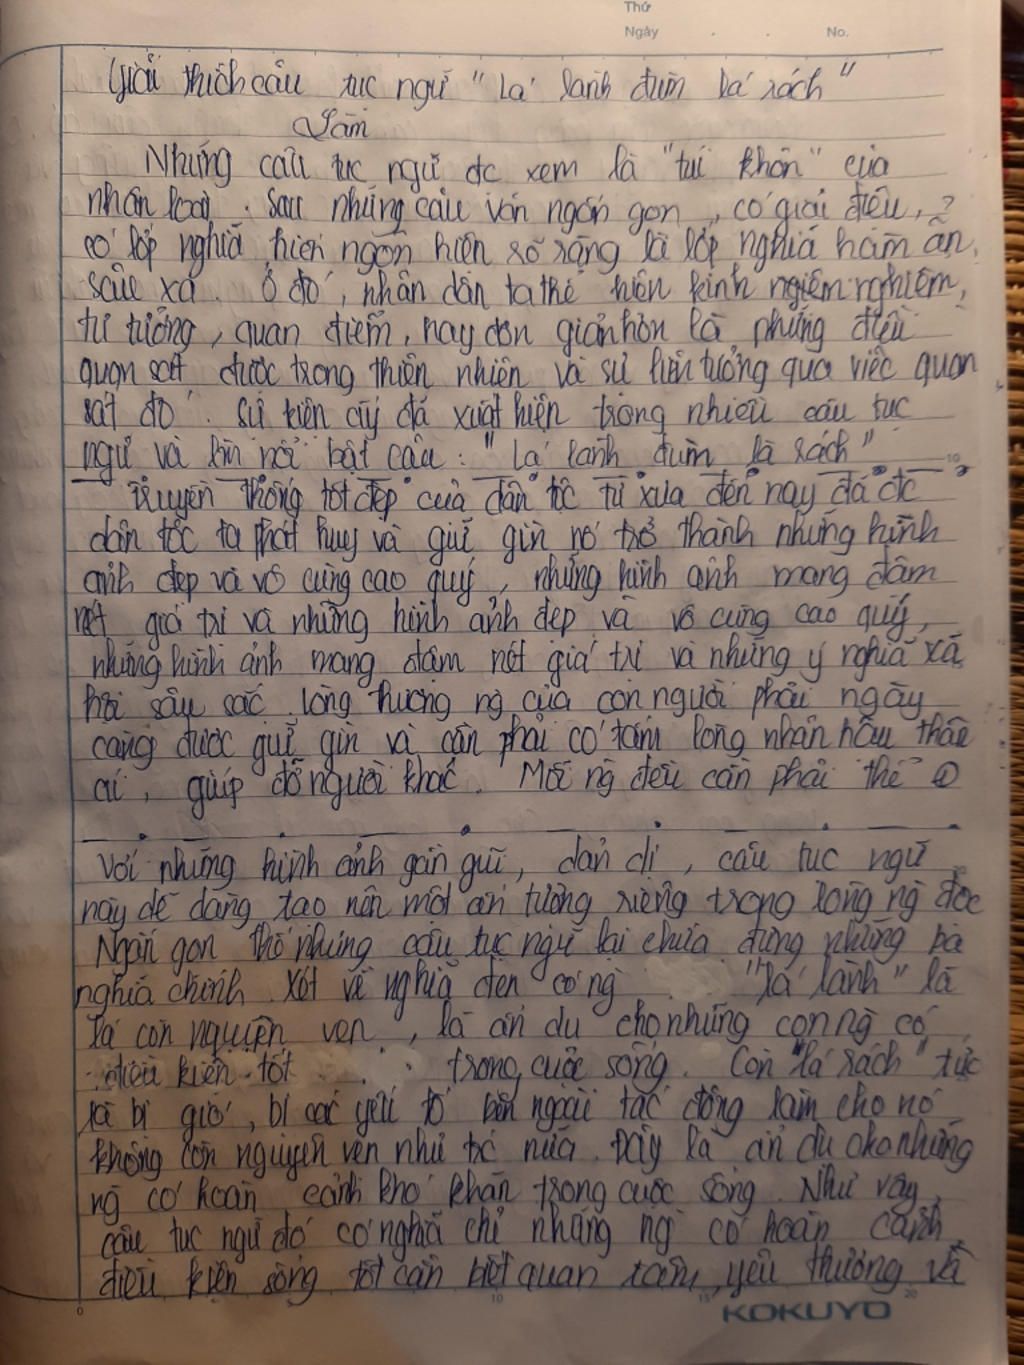 Thứ
Ngày . . No.
Giải thích câu tục ngữ " Lá lành đùm lá rách "
Làm
Những câu tục ngữ đc xem là "túi khôn" của
nhân loại . Sau những câu văn ngắn gọn , có giai điệu,
có lớp nghĩa hiển ngôn hiện rõ ràng là lớp nghĩa hàm ẩn,
sâu xa . Ở đó , nhân dân ta thể hiện kinh nghiệm,
tư tưởng , quan điểm , hay đơn giản hơn là những điều
quan sát được trong thiên nhiên và sự liên tưởng qua việc quan
sát đó . Sự kiện ấy đã xuất hiện trong nhiều câu tục
ngữ và nổi bật câu : " Lá lành đùm lá rách "
Truyền thống tốt đẹp của dân tộc từ xưa đến nay đã đc
dân tộc ta phát huy và giữ gìn nó trở thành những hình
ảnh đẹp và vô cùng cao quý , những hình ảnh mang đậm
nét giá trị và những hình ảnh đẹp và vô cùng cao quý,
những hình ảnh mang đậm nét giá trị và những ý nghĩa xã
hội sâu sắc . lòng thương ng của con người phải ngày
càng được giữ gìn và cần phải có tấm lòng nhân hậu thân
ái , giúp đỡ người khác . Mỗi ng đều cần phải thế
Với những hình ảnh gần gũi , dản dị , câu tục ngữ
này dễ dàng tạo nên một ấn tượng riêng trong lòng ng đọc
Ngắn gọn thế nhưng câu tục ngữ lại chứa đựng những
nghĩa chính . Xét về nghĩa đen "lá lành" là
lá còn nguyện vẹn , là ẩn dụ cho những con ng có
điều kiện tốt trong cuộc sống . Còn "lá rách" tức
là bị gió , bị các yếu tố bên ngoài tác động làm cho nó
không còn nguyên vẹn như trc nữa . Đây là ẩn dụ cho những
ng có hoàn cảnh khó khăn trong cuộc sống . Như vậy,
câu tục ngữ đó có nghĩa chỉ những ng có hoàn cảnh,
điều kiện sống tốt cần biết quan tâm, yêu thương và
0 10 15 20
KOKUYO